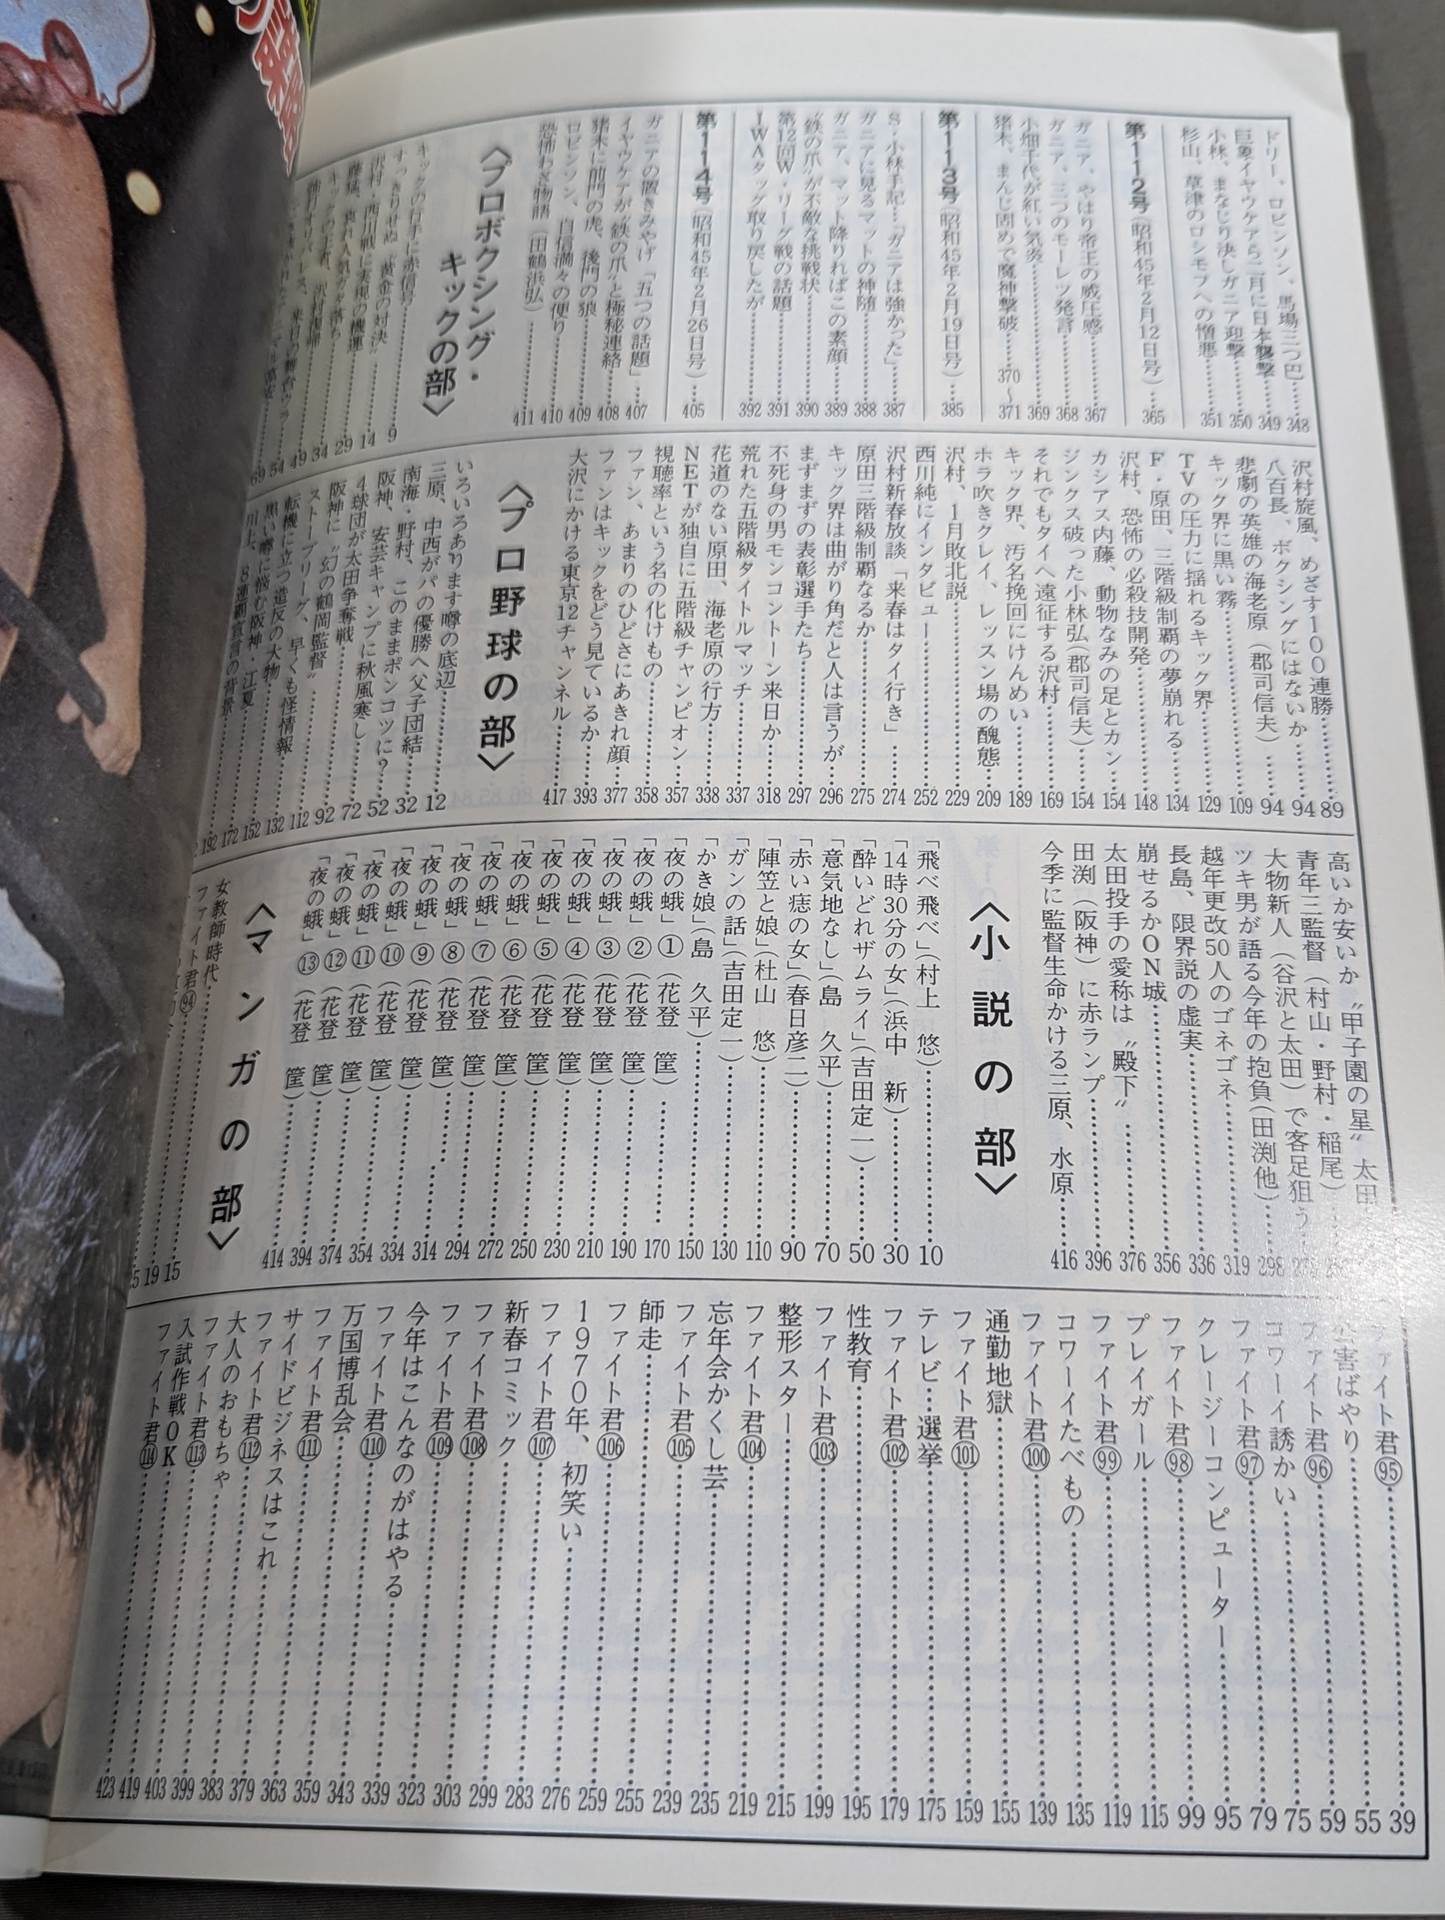 ドリー、ロビンソン、馬場三つ巴……348
巨象イヤウケアら二月に日本襲撃……349
小林、まなじり決しガニア迎撃……350
杉山、草津のロシモフへの憎悪……351
第112号(昭和45年2月12日号)…365
ガニア、やはり帝王の威圧感……367
ガニア、三つのモーレツ発言……368
小畑千代が紅い気炎……369
猪木、まんじ固めで魔神撃破……370〜371
第113号(昭和45年2月19日号)…385
S・小林手記…「ガニアは強かった」……387
ガニアに見るマットの神随……388
ガニア、マット降りればこの素顔……389
“鉄の爪”が不敵な挑戦状……390
第12回W・リーグ戦の話題……391
IWAタッグ取り戻したが……392
第114号(昭和45年2月26日号)…405
ガニアの置きみやげ「五つの話題」……407
イヤウケアが“鉄の爪”と極秘連絡……408
猪木に前門の虎、後門の狼……409
ロビンソン、自信満々の便り……410
恐怖わざ物語(田鶴浜弘)……411
〈プロボクシング・
キックの部〉
キックの行手に赤信号……9
すっきりせぬ“黄金の対決”……14
沢村―西川戦に実現の機運……29
沢村旋風、めざす100連勝……89
八百長、ボクシングにはないか……94
悲劇の英雄の海老原(郡司信夫)…94
キック界に黒い霧……109
TVの圧力に揺れるキック界……129
F・原田、三階級制覇の夢崩れる……134
沢村、恐怖の必殺技開発……148
カシアス内藤、動物なみの足とカン……154
ジンクス破った小林弘(郡司信夫)…154
それでもタイへ遠征する沢村……169
キック界、汚名挽回にけんめい……189
ホラ吹きクレイ、レッスン場の醜態……209
沢村、1月敗北説……229
西川純にインタビュー……252
沢村新春放談「来春はタイ行き」……274
原田三階級制覇なるか……275
キック界は曲がり角だと人は言うが……296
まずまずの表彰選手たち……297
不死身の男モンコントーン来日か……318
荒れた五階級タイトルマッチ……337
花道のない原田、海老原の行方……338
NETが独自に五階級チャンピオン……357
視聴率という名の化けもの……358
ファン、あまりのひどさにあきれ顔……377
ファンはキックをどう見ているか……393
大沢にかける東京12チャンネル……417
〈プロ野球の部〉
いろいろあります噂の底辺……12
三原、中西がパの優勝へ父子団結……32
南海・野村、このままポンコツに?……52
阪神、安芸キャンプに秋風寒し……72
4球団が太田争奪戦……92
阪神に“幻の鶴岡監督”……112
ストーブリーグ、早くも怪情報……132
転機に立つ造反の大物……152
黒い噂に悩む阪神・江夏……172
川上、8連覇宣言の背景……192
高いか安いか“甲子園の星”太田
青年三監督(村山・野村・稲尾)
大物新人(谷沢と太田)で客足狙う
ツキ男が語る今年の抱負(田渕他)…298
越年更改50人のゴネゴネ……319
長島、限界説の虚実……336
崩せるかON城……356
太田投手の愛称は“殿下”……376
田渕(阪神)に赤ランプ……396
今季に監督生命かける三原、水原……416
〈小説の部〉
「飛べ飛べ」(村上 悠)……10
「14時30分の女」(浜中 新)……30
「酔いどれザムライ」(吉田定一)……50
「意気地なし」(島 久平)……70
「赤い痣の女」(春日彦二)……90
「陣笠と娘」(杜山 悠)……110
「ガンの話」(吉田定一)……130
「かき娘」(島 久平)……150
「夜の蛾」①(花登 筐)……170
「夜の蛾」②(花登 筐)……190
「夜の蛾」③(花登 筐)……210
「夜の蛾」④(花登 筐)……230
「夜の蛾」⑤(花登 筐)……250
「夜の蛾」⑥(花登 筐)……272
「夜の蛾」⑦(花登 筐)……294
「夜の蛾」⑧(花登 筐)……314
「夜の蛾」⑨(花登 筐)……334
「夜の蛾」⑩(花登 筐)……354
「夜の蛾」⑪(花登 筐)……374
「夜の蛾」⑫(花登 筐)……394
「夜の蛾」⑬(花登 筐)……414
〈マンガの部〉
女教師時代……15
ファイト君94……19
ファイト君95……39
公害ばやり……55
ファイト君96……59
コワーイ誘かい……75
ファイト君97……79
クレージーコンピューター……95
ファイト君98……99
プレイガール……115
ファイト君99……119
コワーイたべもの……135
ファイト君100……139
通勤地獄……155
ファイト君101……159
テレビ…選挙……175
ファイト君102……179
性教育……195
ファイト君103……199
整形スター……215
ファイト君104……219
忘年会かくし芸……235
ファイト君105……239
師走……255
ファイト君106……259
1970年、初笑い……276
ファイト君107……283
新春コミック……299
ファイト君108……303
ファイト君109……323
今年はこんなのがはやる……339
ファイト君110……343
万国博乱会……359
ファイト君111……363
サイドビジネスはこれ……379
ファイト君112……383
大人のおもちゃ……399
ファイト君113……403
入試作戦OK……419
ファイト君114……423